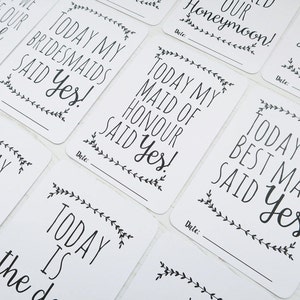 WE
OUR
Honeymoon!
Date:
TODAY MY
BRIDESMAIDS
SAID Yes!
Date:
TODAY MY
MAID OF
HONOUR
SAID Yes!
Date:
TODAY
BEST MA
SAID Yes
Date:
TODAY
IS
the d